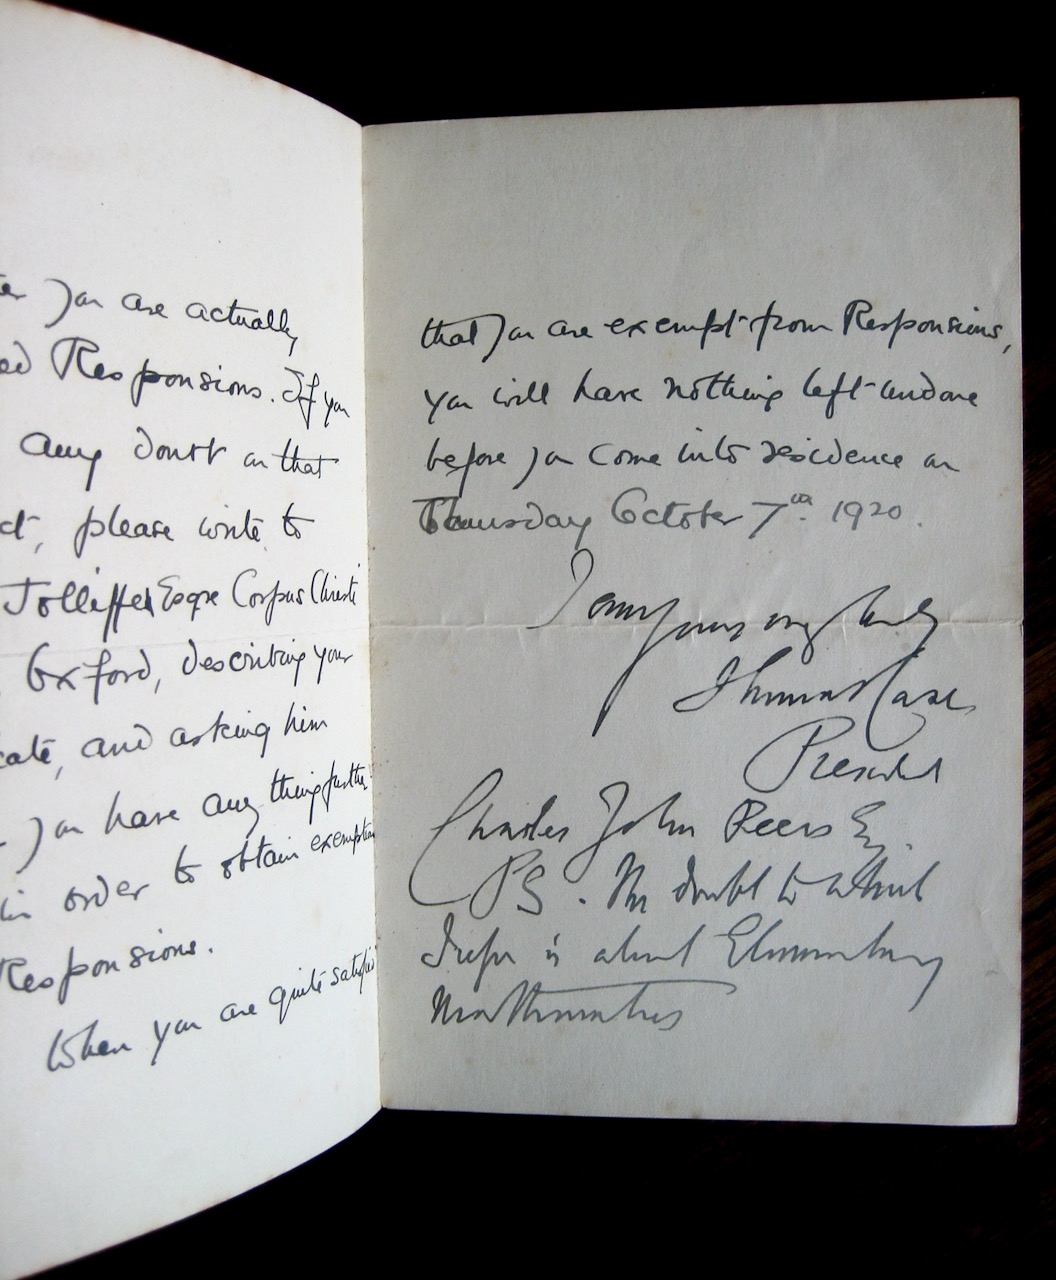 you are actually
Responsions. If you
any doubt on that
please write to
Jolliffe Esqre Corpus Christi
Oxford, describing your
and asking him
you have any thing further
in order to obtain exemption
Responsions.
When you are quite satisfied
that you are exempt from Responsions,
you will have nothing left undone
before you come into residence on
Thursday October 7th. 1920.
I am yours very truly
Thomas Case
President
Charles John Peers Esq.
PS. The doubt to which
I refer is about Elementary
Mathematics